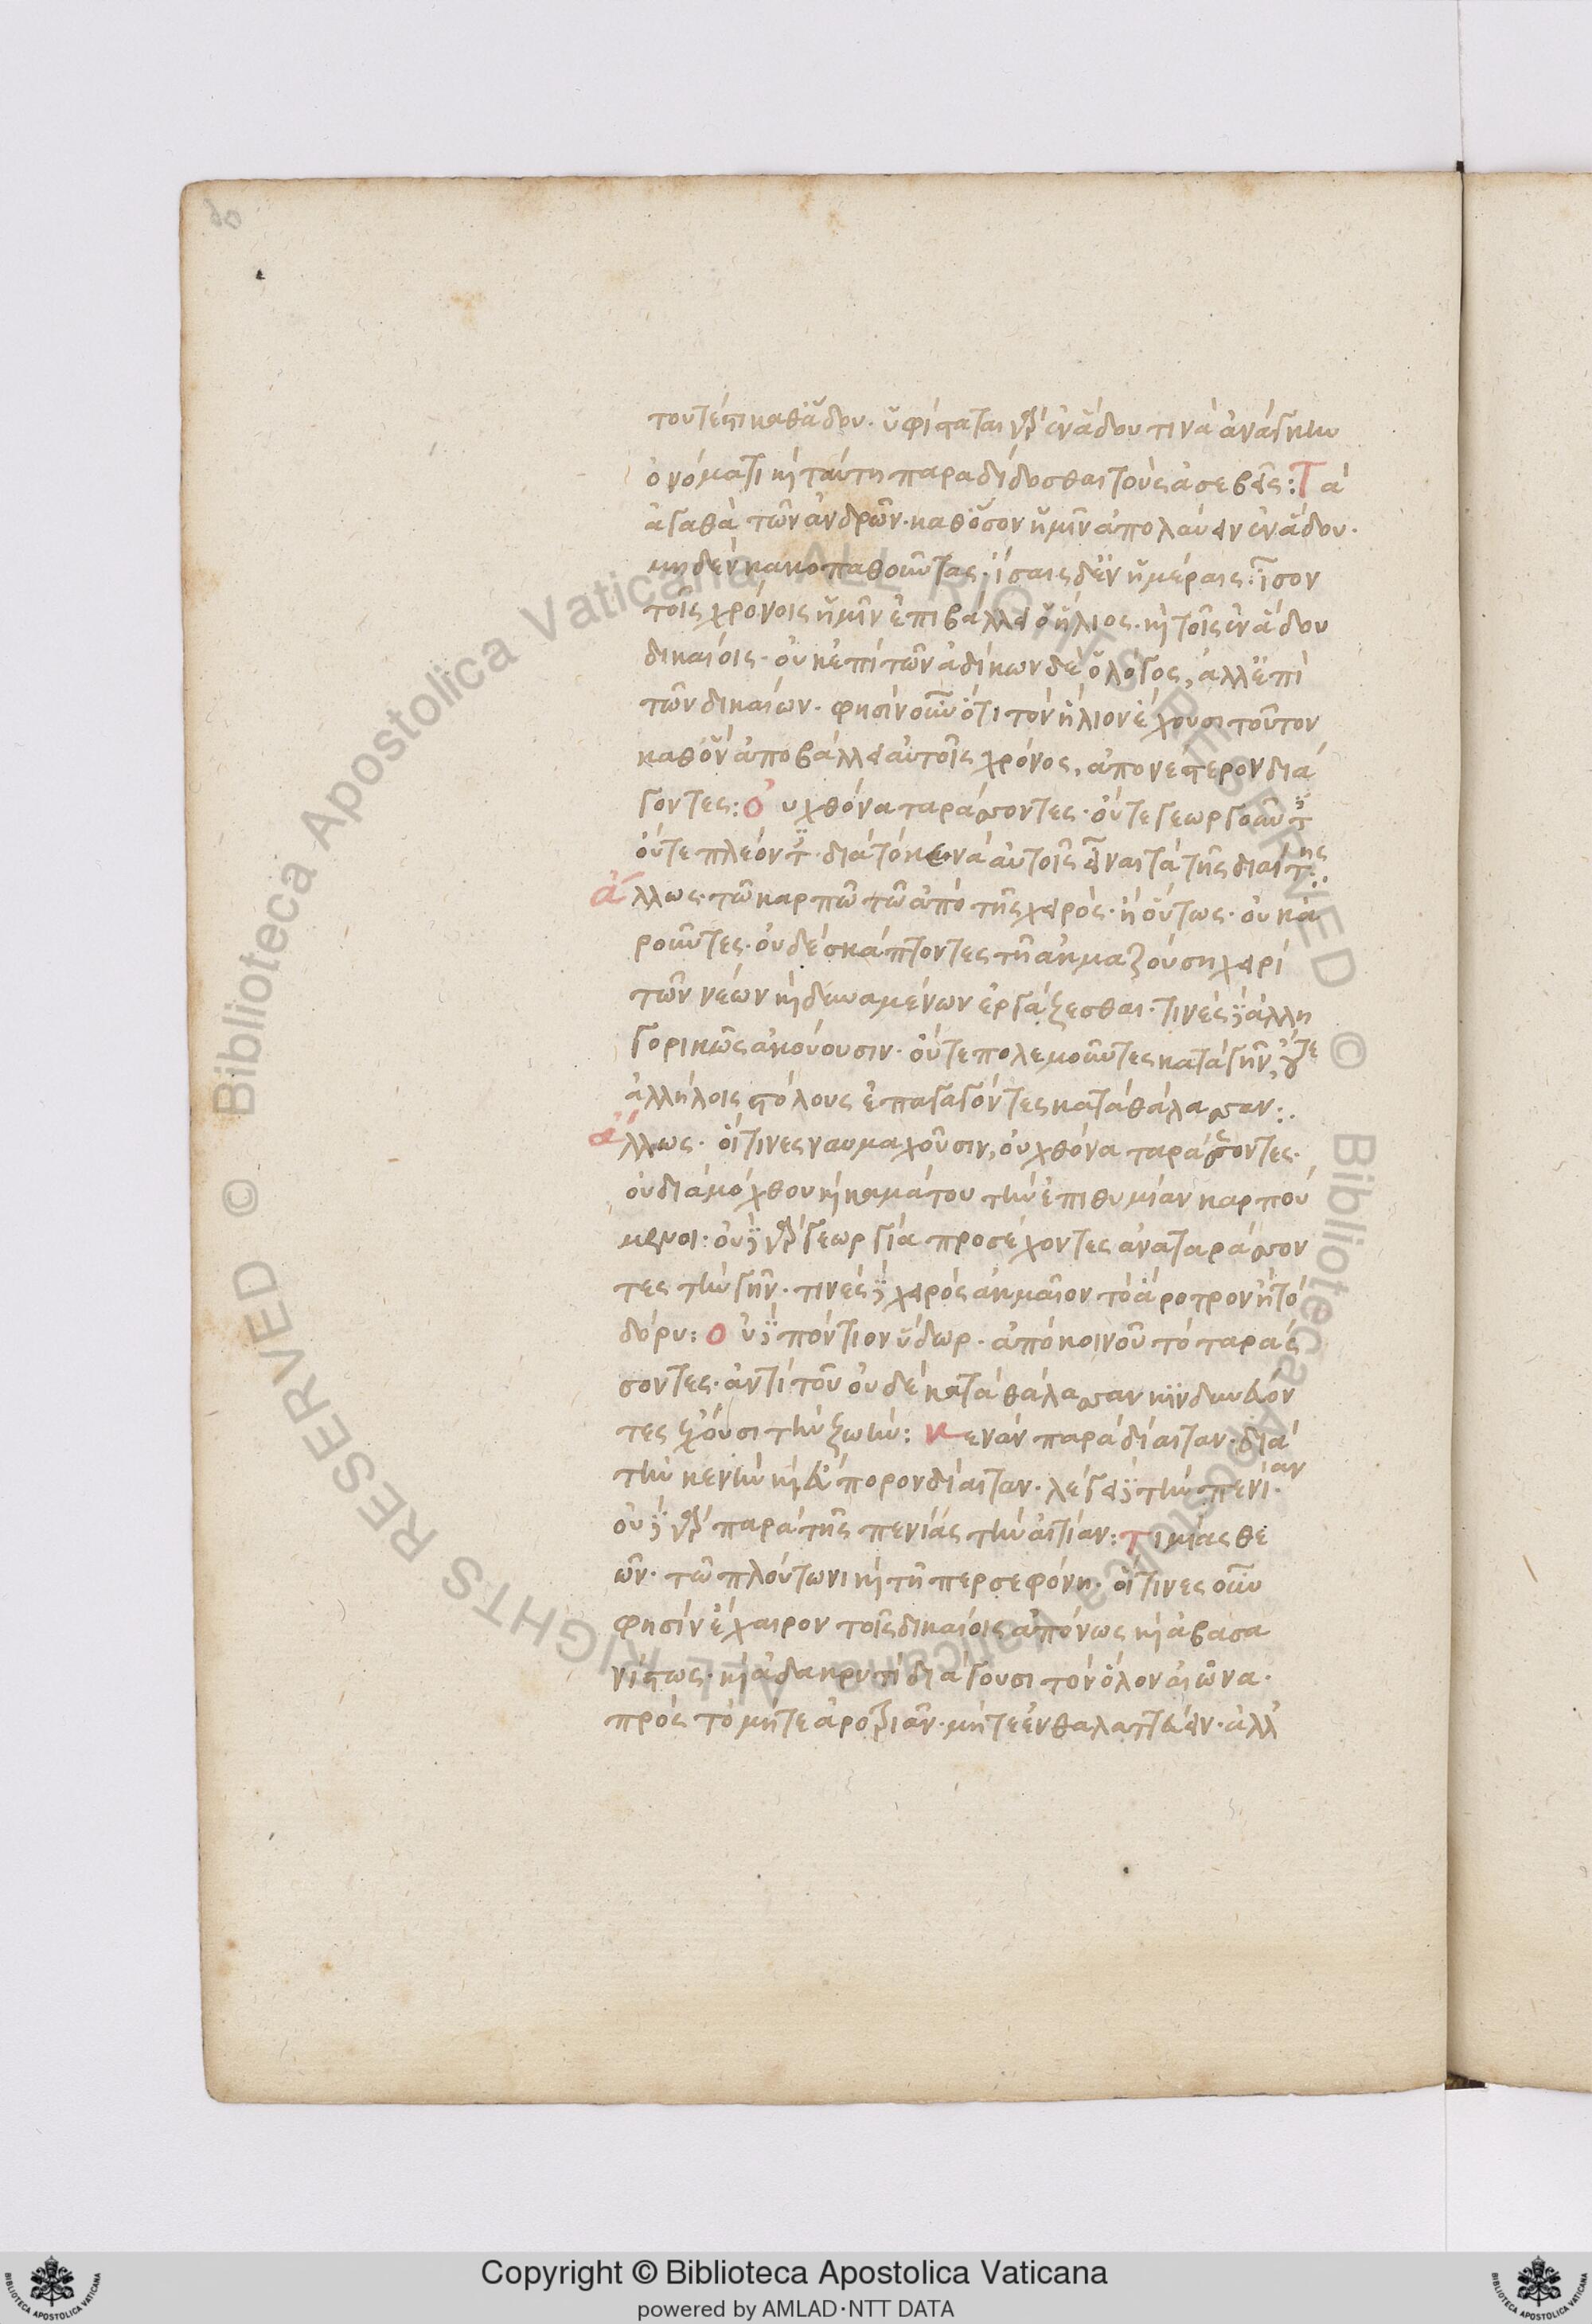 τουτέστι καθ' ἅδου. ὑφίσταται γὰρ ἐν ἅδου τινὰ ἀνάγκην
ὀνόματι καὶ ταύτη παραδίδοσθαι τοὺς ἀσεβεῖς: Τὰ
ἀγαθὰ τῶν ἀνδρῶν. καθ' ὅσον ἡμῖν ἀπολαύειν ἐν ἅδου.
μηδὲν κακοπαθοῦντας. ἴσαις δ' ἐν ἡμέραις: ἴσον
τοῖς χρόνοις ἡμῖν ἐπιβάλλει ὁ ἥλιος. καὶ τοῖς ἐν ἅδου
δικαίοις. οὐκ ἐπὶ τῶν ἀδίκων δὲ ὁ λόγος, ἀλλ' ἐπὶ
τῶν δικαίων. φησὶν οὖν ὅτι τὸν ἥλιον ἔχουσι τοῦτον
καθ' ὃν ἀποβάλλει αὐτοῖς χρόνος, ἀπονέστερον διά
γοντες: Οὐ χθόνα ταράσσοντες. οὔτε γεωργοῦντες
οὔτε πλέοντες. διὰ τὸ κενὰ αὐτοῖς εἶναι τὰ τῆς διαίτης:.
ἄλλως. τῶν καρπῶν τῶν ἀπὸ τῆς χειρός. ἢ οὕτως. οὐκ ἀ
ροῦντες. οὐδὲ σκάπτοντες τῆ ἀκμαζούση χειρὶ
τῶν νέων καὶ δυναμένων ἐργάζεσθαι. τινὲς δὲ ἀλλη
γορικῶς ἀκούουσιν. οὔτε πολεμοῦντες κατὰ γῆν, οὔτε
ἀλλήλοις στόλους ἐπαγαγόντες κατὰ θάλασσαν:.
ἄλλως. οἵτινες ναυμαχοῦσιν, οὐ χθόνα ταράσσοντες.
οὐ διὰ μόχθου καὶ καμάτου τὴν ἐπιθυμίαν καρπού
μενοι. οὐδὲ γὰρ γεωργία προσέχοντες ἀναταράσσον
τες τὴν γῆν. τινὲς δὲ χειρὸς ἀκμαῖον τὸ ἄροτρον ἢ τὸ
δόρυ: Οὐδὲ πόντιον ὕδωρ. ἀπὸ κοινοῦ τὸ ταράσ
σοντες. ἀντὶ τοῦ οὐδὲ κατὰ θάλασσαν κινδυνεύον
τες ἔχουσι τὴν ζωήν: Κενὰν παρὰ δίαιταν. διὰ
τὴν κενὴν καὶ εὔπορον δίαιταν. λέγει δὲ τὴν πενίαν.
οὐδὲ γὰρ παρὰ τῆς πενίας τὴν αἰτίαν: Τιμίας θε
ῶν. τῶ πλούτωνι καὶ τῆ περσεφόνη. οἵτινες οὖν
φησὶν ἔχαιρον τοῖς δικαίοις ἀπόνως καὶ ἀβασα
νίστως. καὶ ἀδακρυτὶ διάγουσι τὸν ὅλον αἰῶνα.
πρὸς τὸ μήτε ἀροτριᾶν. μήτε ἐνθαλαττεύειν. ἀλλ'